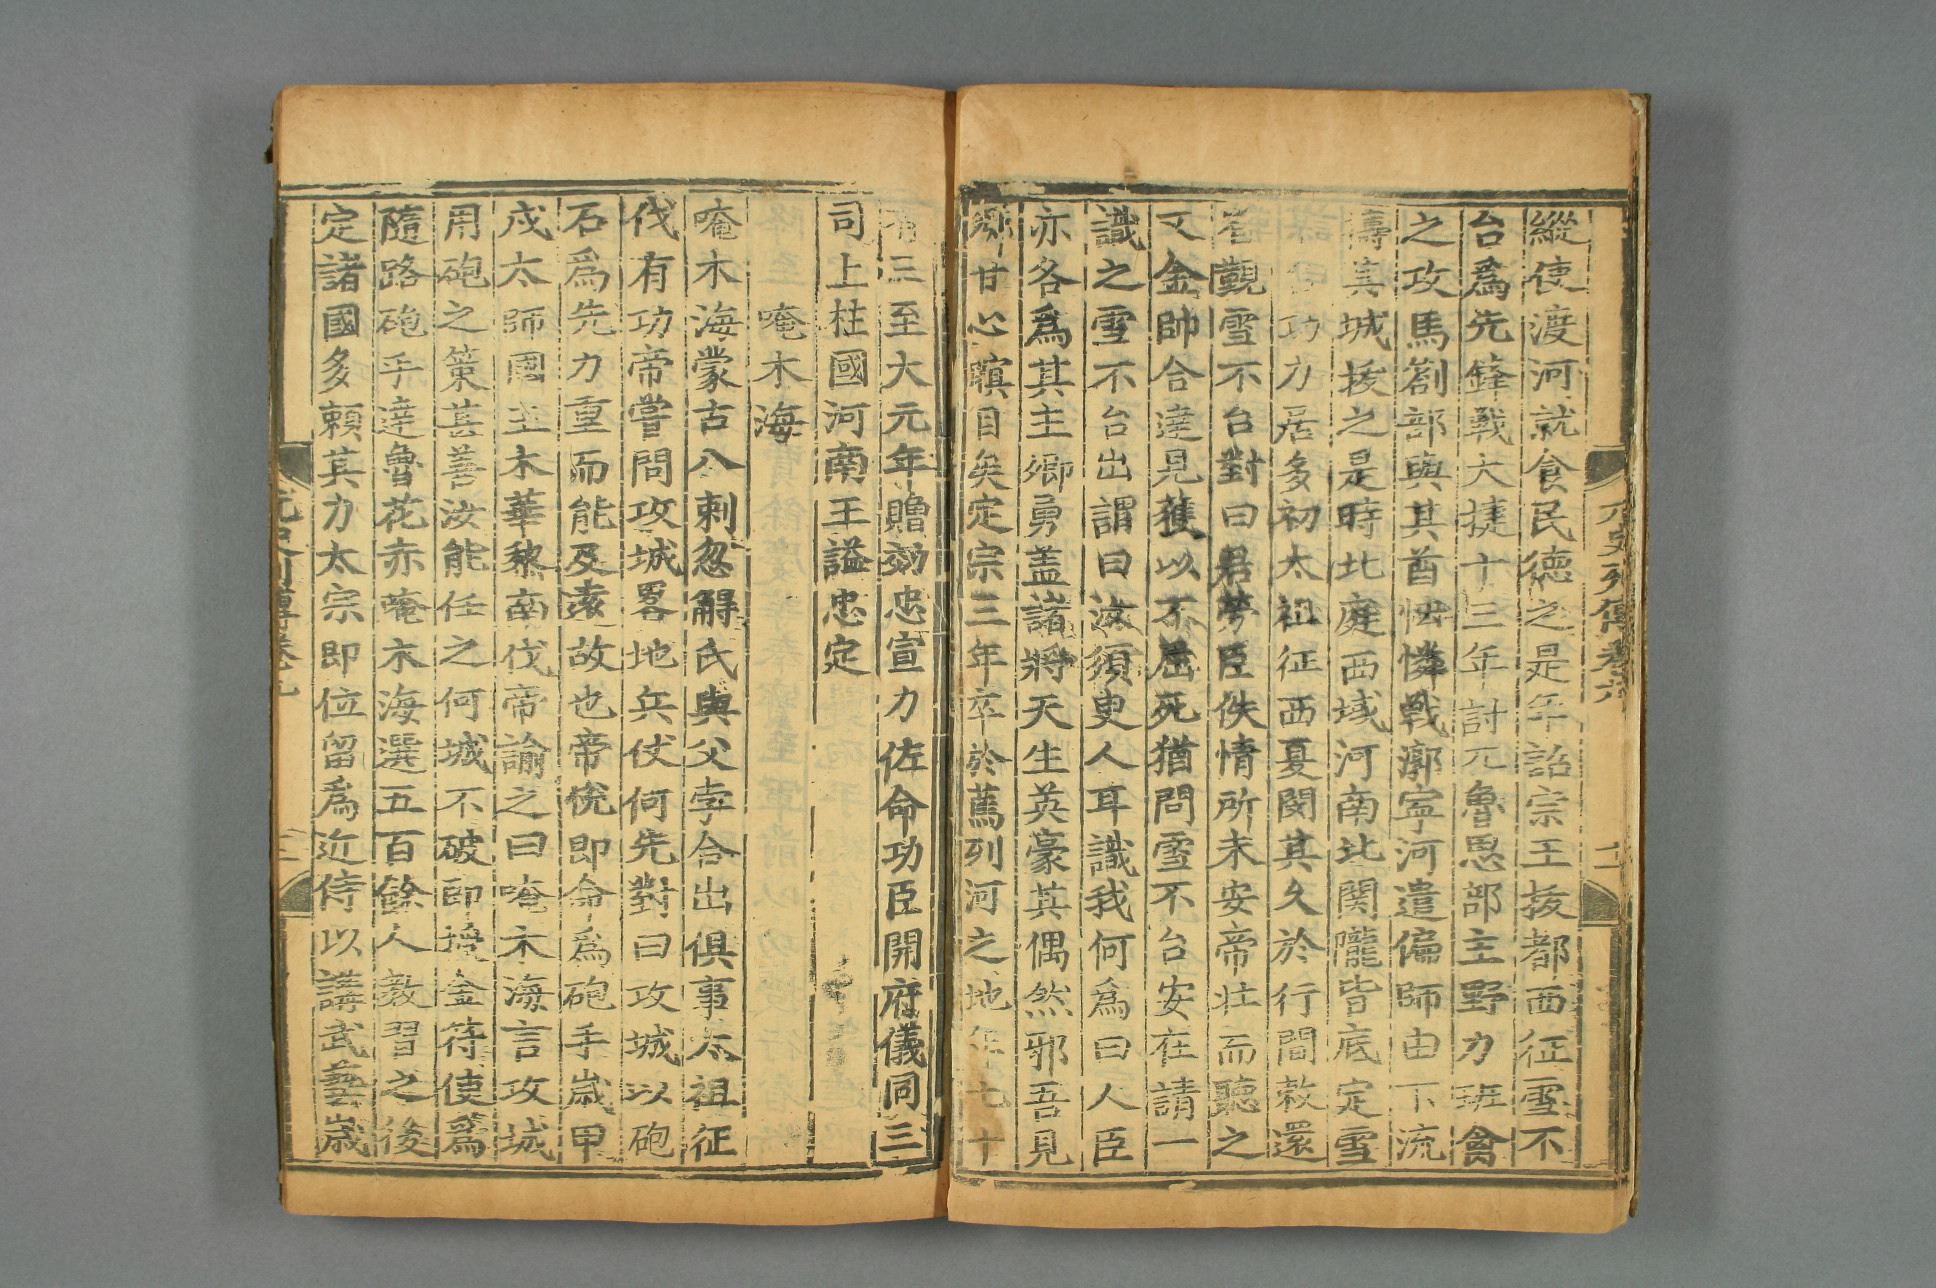 縱使渡河就食民德之是年詔宗王拔都西征雪不
台爲先鋒戰大捷十三年討兀魯思部主野力班禽
之攻馬劄部與其酋怯憐戰漷寧河遣偏師由下流
擣其城拔之是時北庭西域河南北關隴皆底定雪
不台功力居多初太祖征西夏閔其久於行間敕還
省覲雪不台對曰君勞臣佚情所未安帝壯而聽之
又金帥合達見獲以不屈死猶問雪不台安在請一
識之雪不台出謂曰汝須臾人耳識我何爲曰人臣
亦各爲其主鄉勇盖諸將天生英豪其偶然邪吾見
鄉甘心瞑目矣定宗三年卒於篤列河之地年七十
有三至大元年贈効忠宣力佐命功臣開府儀同三
司上柱國河南王謚忠定
唵木海
唵木海蒙古八剌忽䚟氏與父孛合出俱事太祖征
伐有功帝嘗問攻城畧地兵仗何先對曰攻城以砲
石爲先力重而能及遠故也帝悅即命爲砲手歲甲
戌太師國王木華黎南伐帝諭之曰唵木海言攻城
用砲之策甚善汝能任之何城不破即授金符使爲
隨路砲手達魯花赤唵木海選五百餘人教習之後
定諸國多賴其力太宗即位留爲近侍以講武藝歲
元史列傳卷九